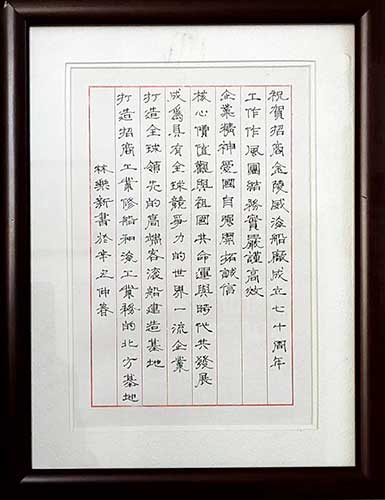 祝賀招商金陵威海船廠成立七十周年
工作作風團結務實嚴謹高效
企業精神愛國自強開拓誠信
核心價值觀與祖國共命運與時代共發展
成爲具有全球競爭力的世界一流企業
打造全球領先的高端客滾船建造基地
打造招商工業修船和海工業務的北方基地
林樂新書於辛丑仲春